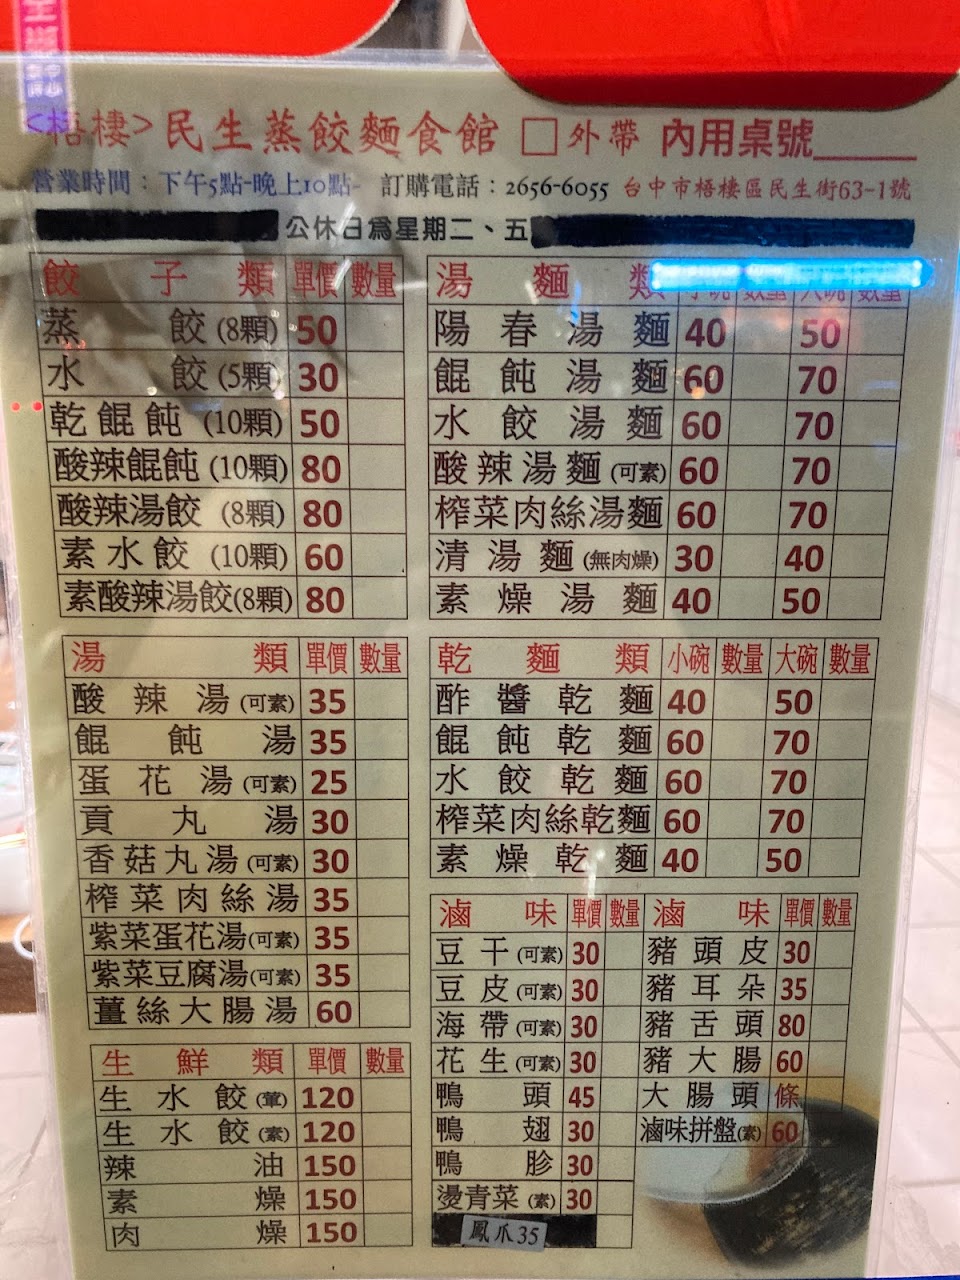 <梧棲>民生蒸餃麵食館 □外帶 內用桌號
營業時間：下午5點-晚上10點- 訂購電話：2656-6055 台中市梧棲區民生街63-1號
公休日為星期二、五
餃子類 單價 數量
蒸餃(8顆) 50
水餃(5顆) 30
乾餛飩(10顆) 50
酸辣餛飩(10顆) 80
酸辣湯餃(8顆) 80
素水餃(10顆) 60
素酸辣湯餃(8顆) 80
湯類 單價 數量
酸辣湯(可素) 35
餛飩湯 35
蛋花湯(可素) 25
貢丸湯 30
香菇丸湯(可素) 30
榨菜肉絲湯 35
紫菜蛋花湯(可素) 35
紫菜豆腐湯(可素) 35
薑絲大腸湯 60
生鮮類 單價 數量
生水餃(葷) 120
生水餃(素) 120
辣油 150
素燥 150
肉燥 150
湯麵類 小碗 數量 大碗 數量
陽春湯麵 40 50
餛飩湯麵 60 70
水餃湯麵 60 70
酸辣湯麵(可素) 60 70
榨菜肉絲湯麵 60 70
清湯麵(無肉燥) 30 40
素燥湯麵 40 50
乾麵類 小碗 數量 大碗 數量
酢醬乾麵 40 50
餛飩乾麵 60 70
水餃乾麵 60 70
榨菜肉絲乾麵 60 70
素燥乾麵 40 50
滷味 單價 數量 滷味 單價 數量
豆干(可素) 30 豬頭皮 30
豆皮(可素) 30 豬耳朵 35
海帶(可素) 30 豬舌頭 80
花生(可素) 30 豬大腸 60
鴨頭 45 大腸頭 條
鴨翅 30 滷味拼盤(素) 60
鴨胗 30
燙青菜(素) 30
鳳爪35